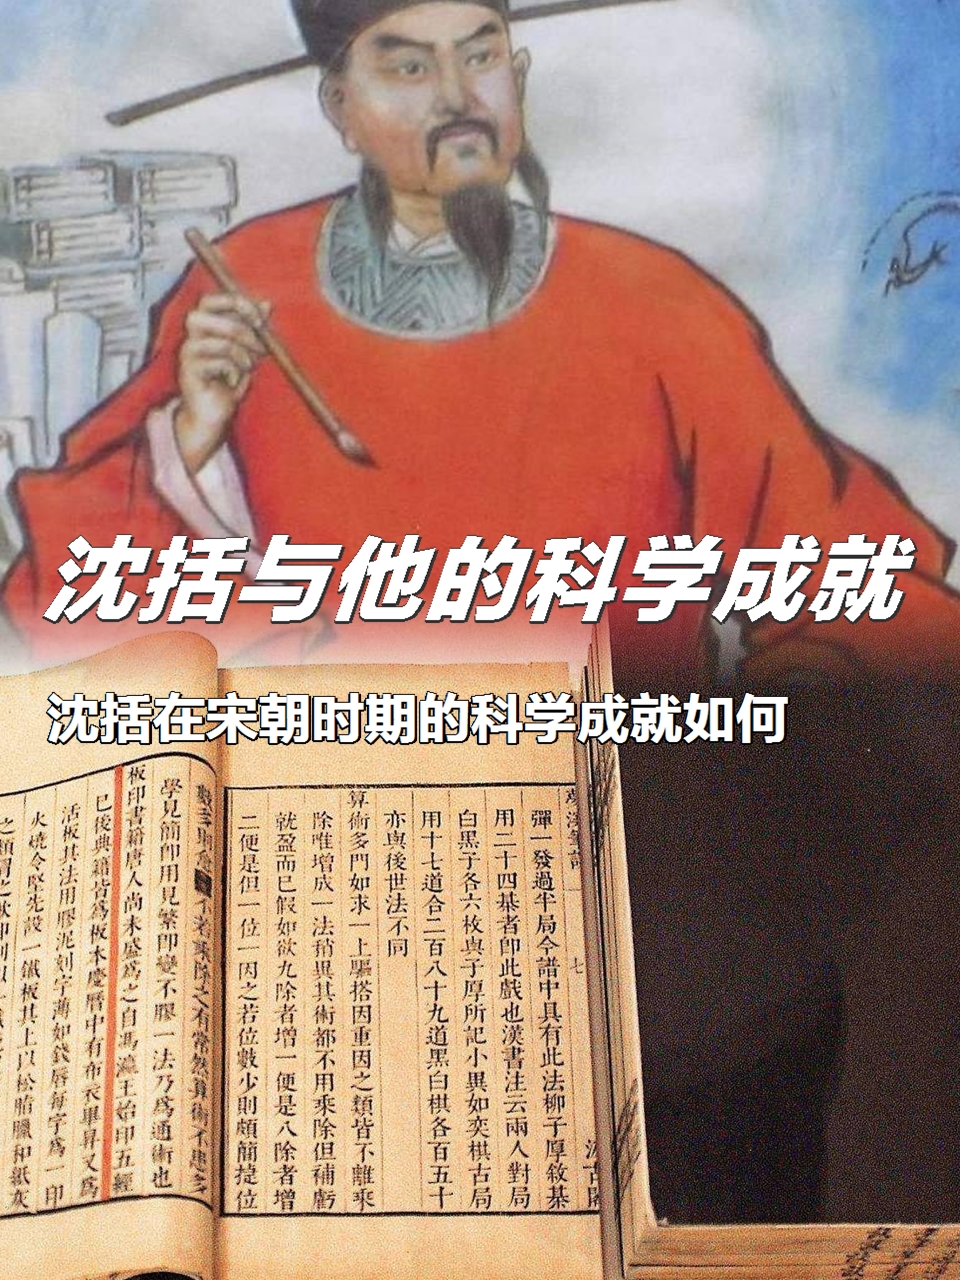 沈括与他的科学成就
沈括在宋朝时期的科学成就如何
七
彈一發過半局今譜中具有此法柳子厚敘棊
用二十四棊者卽此戲也漢書注云兩人對局
白黑子各六枚與子厚所記小異如奕棋古局
用十七道合二百八十九道黑白棋各百五十
亦與後世法不同
算術多門如求一上驅搭因重因之類皆不離乘
除唯增成一法稍異其術都不用乘除但補虧
就盈而已假如欲九除者增一便是八除者增
二便是但一位一因之若位數少則頗簡捷位
不若乘除之有常然算術不患多
學見簡卽用見繁卽變不膠一法乃爲通術也
板印書籍唐人尚未盛爲之自馮瀛王始印五經
已後典籍皆爲板本慶曆中有布衣畢昇又爲
活板其法用膠泥刻字薄如錢唇每字爲一印
火燒令堅先設一鐵板其上以松脂臘和紙灰
之類冒之欲印則以一